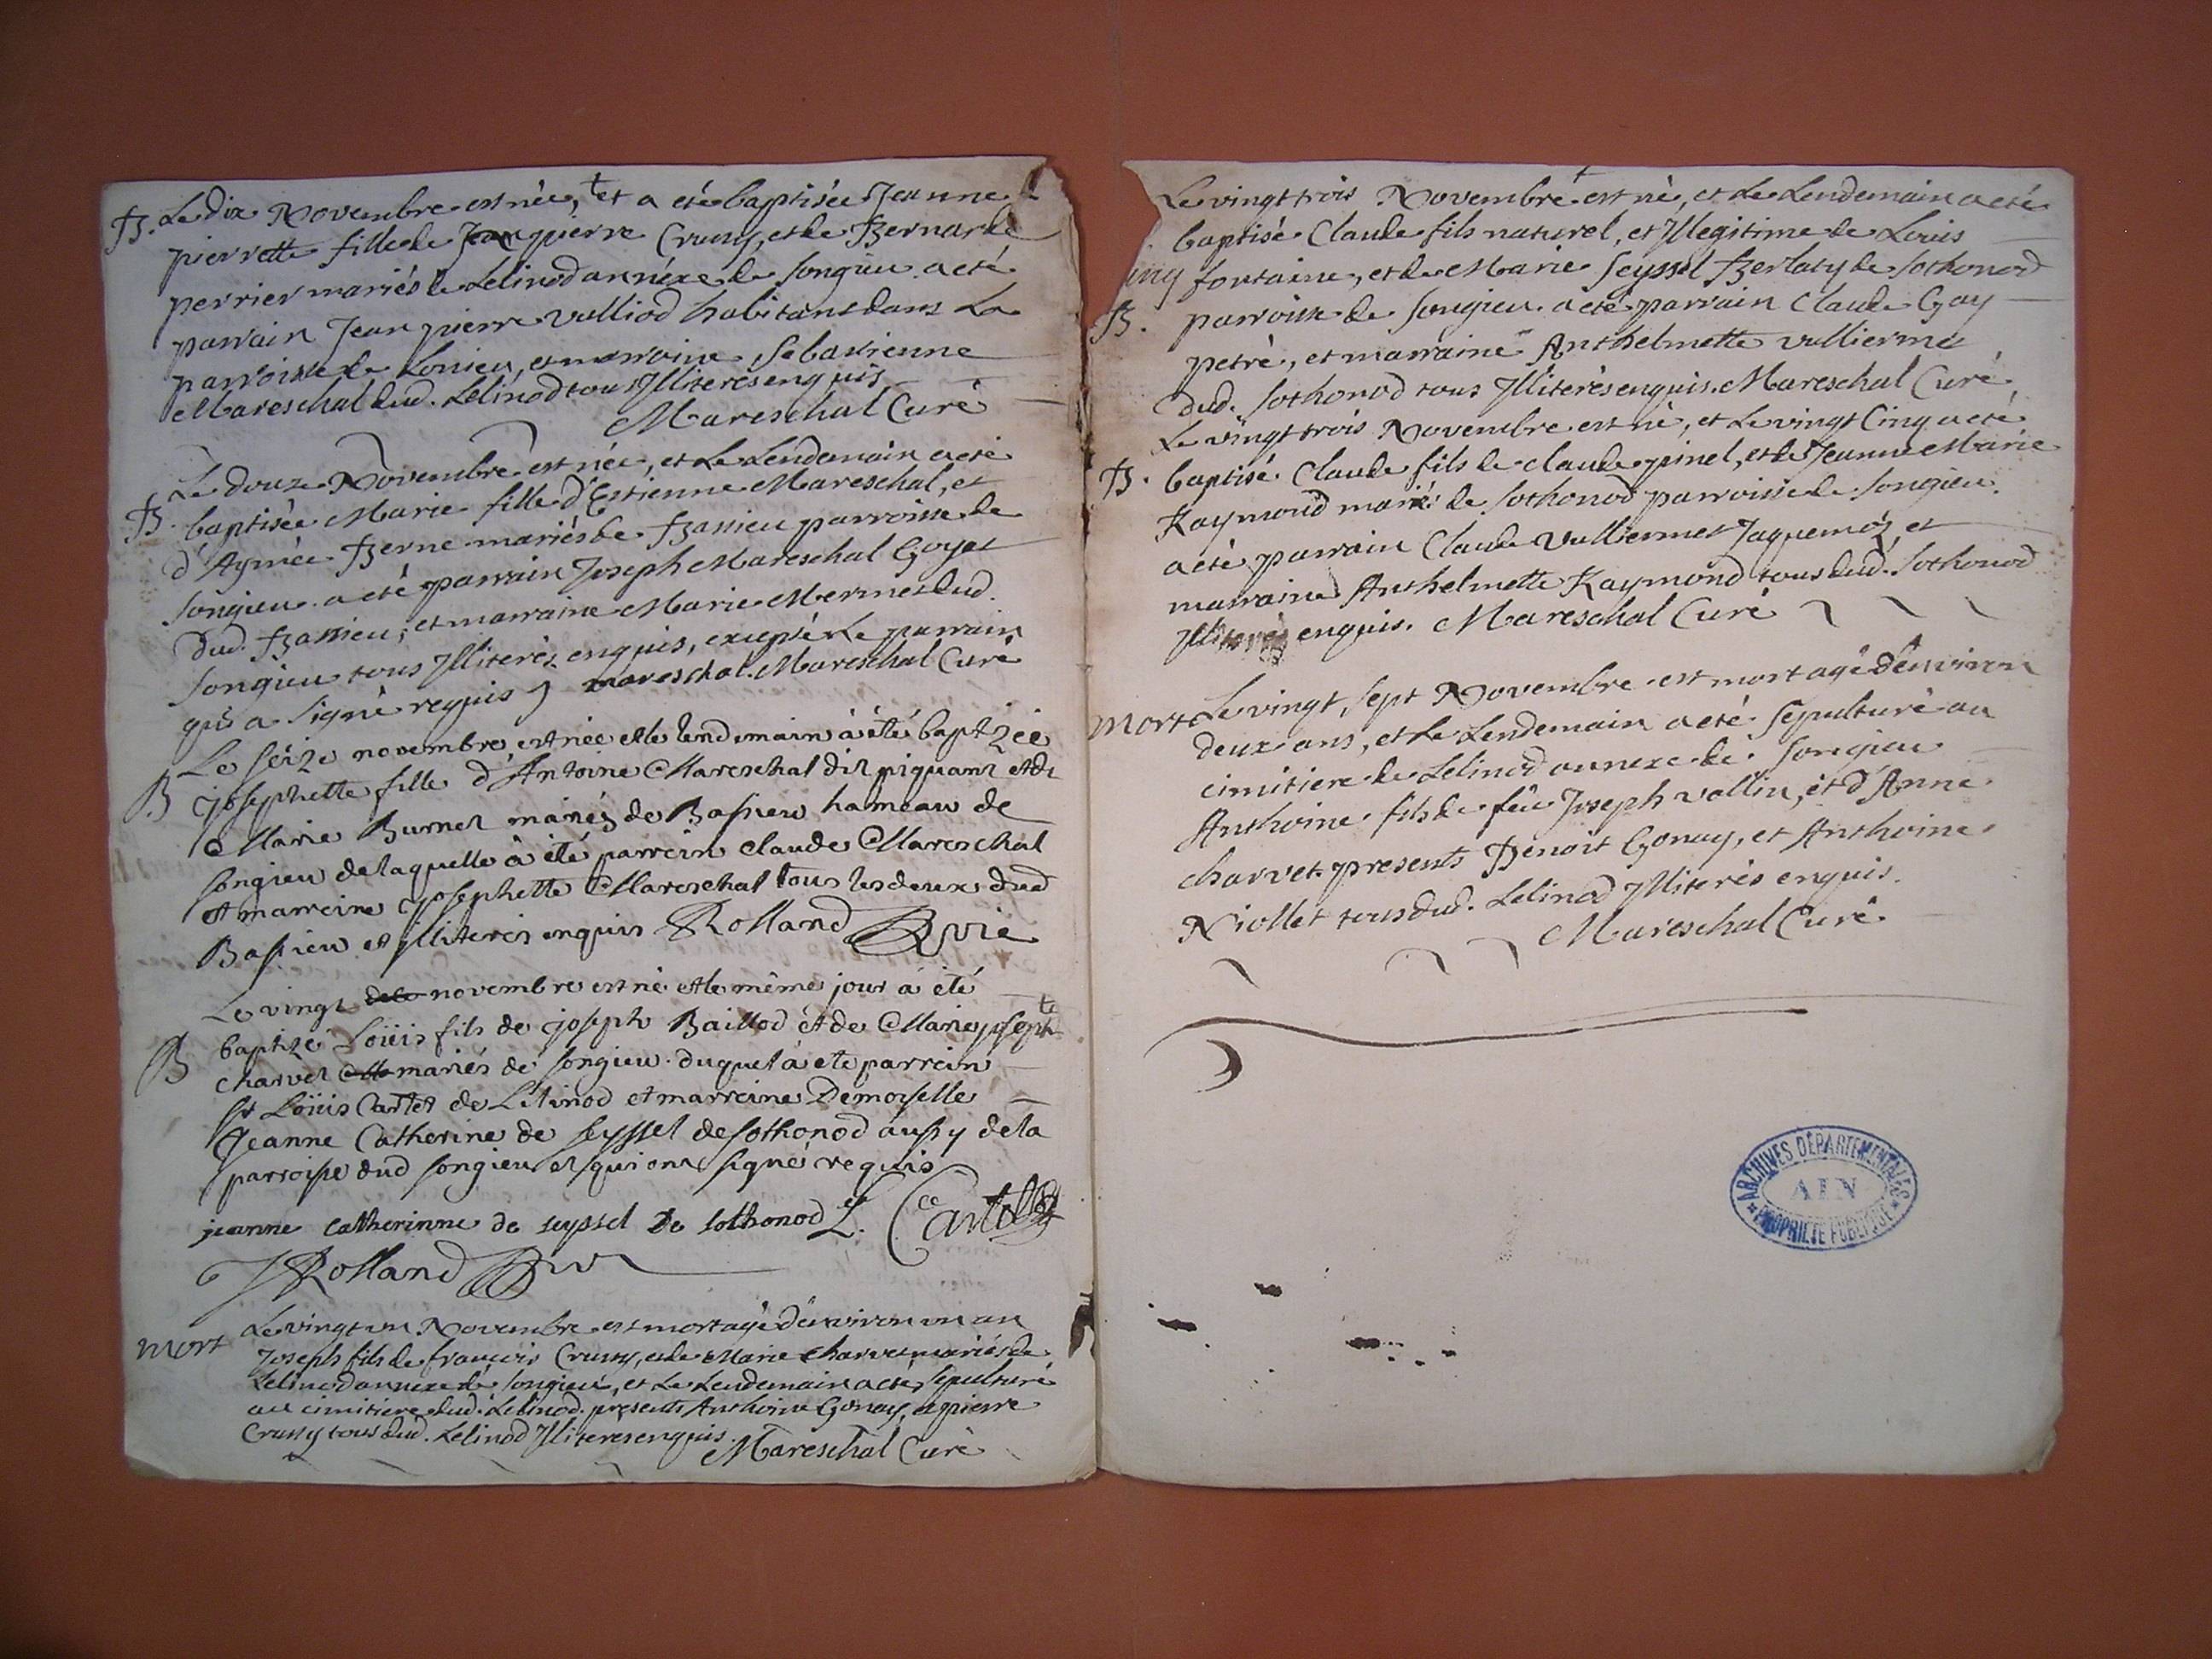 B. Le dix Novembre est née, et a eté baptisée Jeanne
pierrette fille de Jean pierre Crussy, et de Bernarde
perrier mariés de Lelinod annéxe de Songieu. a eté
parrain Jean pierre Vulliod habitant dans La
parroisse de Lonieu, et marraine Sebastienne
Mareschal dud. Lelinod tous Jlliterés enquis
Mareschal Curé
Le douze Novembre est née, et Le Lendemain a eté
B. baptisée Marie fille d'Estienne Mareschal, et
d'Aymée Berne mariés de Bassieu parroisse de
Songieu. a eté parrain Joseph Mareschal Goyet
dud. Bassieu, et marraine Marie Mermet dud.
Songieu tous Jlliterés enquis, excepté Le parrain
qui a signé requis mareschal. Mareschal Curé
Le seize novembre est née et le lendemain à été baptizée
B josephette fille d'Antoine Mareschal dit piquant et de
Marie Burnet mariés de Bassieu hameau de
songieu de laquelle à été parrein claude Mareschal
et marreine josephette Mareschal tous les deux dud
Bassieu et jlliteres enquis Rolland vic
Le vingt de ce novembre est né et le même jour à été
baptizé Loüis fils de joseph Baillod et de Marie josephte
B charvet mariés de songieu. duquel à eté parrein
sr Loüis Cartet de Lilinod et marreine Demoiselle
Jeanne Catherine de seyssel de sothonod aussy de la
parroisse dud songieu et qui ont signés requis
jeanne catherinne de seyssel De sothonod L. Cartelet
J Rolland vic
mort Le vingt un Novembre est mort agé d'environ un an
Joseph fils de francois Crussy, et de Marie Charvet mariés de
Lelinod annexe de Songieu, et Le Lendemain a eté sepulturé
au cimitiere dud. Lelinod. presents Anthoine Gonay, et pierre
Crussy tous dud. Lelinod Jlliterés enquis.
Mareschal Curé
Le vingt trois Novembre est né, et Le Lendemain a eté
baptisé Claude fils naturel, et Jllegitime de Louis
fontaine, et de Marie Seyssel Berlaty de Sothonod
B. parroisse de Songieu. a eté parrain Claude Gay
petré, et marraine Anthelmette Vulliermet
dud. Sothonod tous Jlliterés enquis. Mareschal Curé
Le vingt trois Novembre est né, et Le vingt Cinq a eté
B. baptisé Claude fils de claude pinel, et de Jeanne Marie
Raymond mariés de Sothonod parroisse de Songieu.
a eté parrain Claude Vulliermet Jaquemoz, et
marraine Anthelmette Raymond tous dud. Sothonod
Jlliterés enquis. Mareschal Curé
mort Le vingt, sept Novembre est mort agé d'environ
deux ans, et Le Lendemain a eté sepulturé au
cimitiere de Lelinod annexe de Songieu
Anthoine fils de feu Joseph vallin, et d'Anne
charvet. presents Benoit Gonay, et Anthoine
Niollet tous dud. Lelinod Jlliterés enquis.
Mareschal Curé.
ARCHIVES DÉPARTEMENTALES
AIN
PROPRIÉTÉ PUBLIQUE